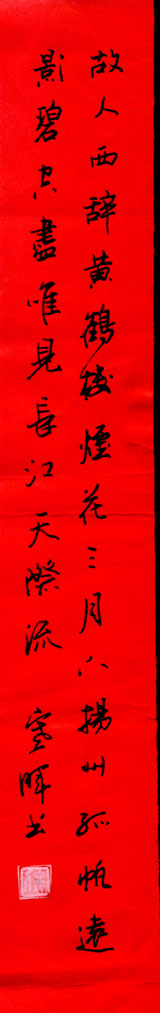 故人西辞黄鶴楼煙花三月下揚州孤帆遠
影碧空盡唯見長江天際流 寒暉书